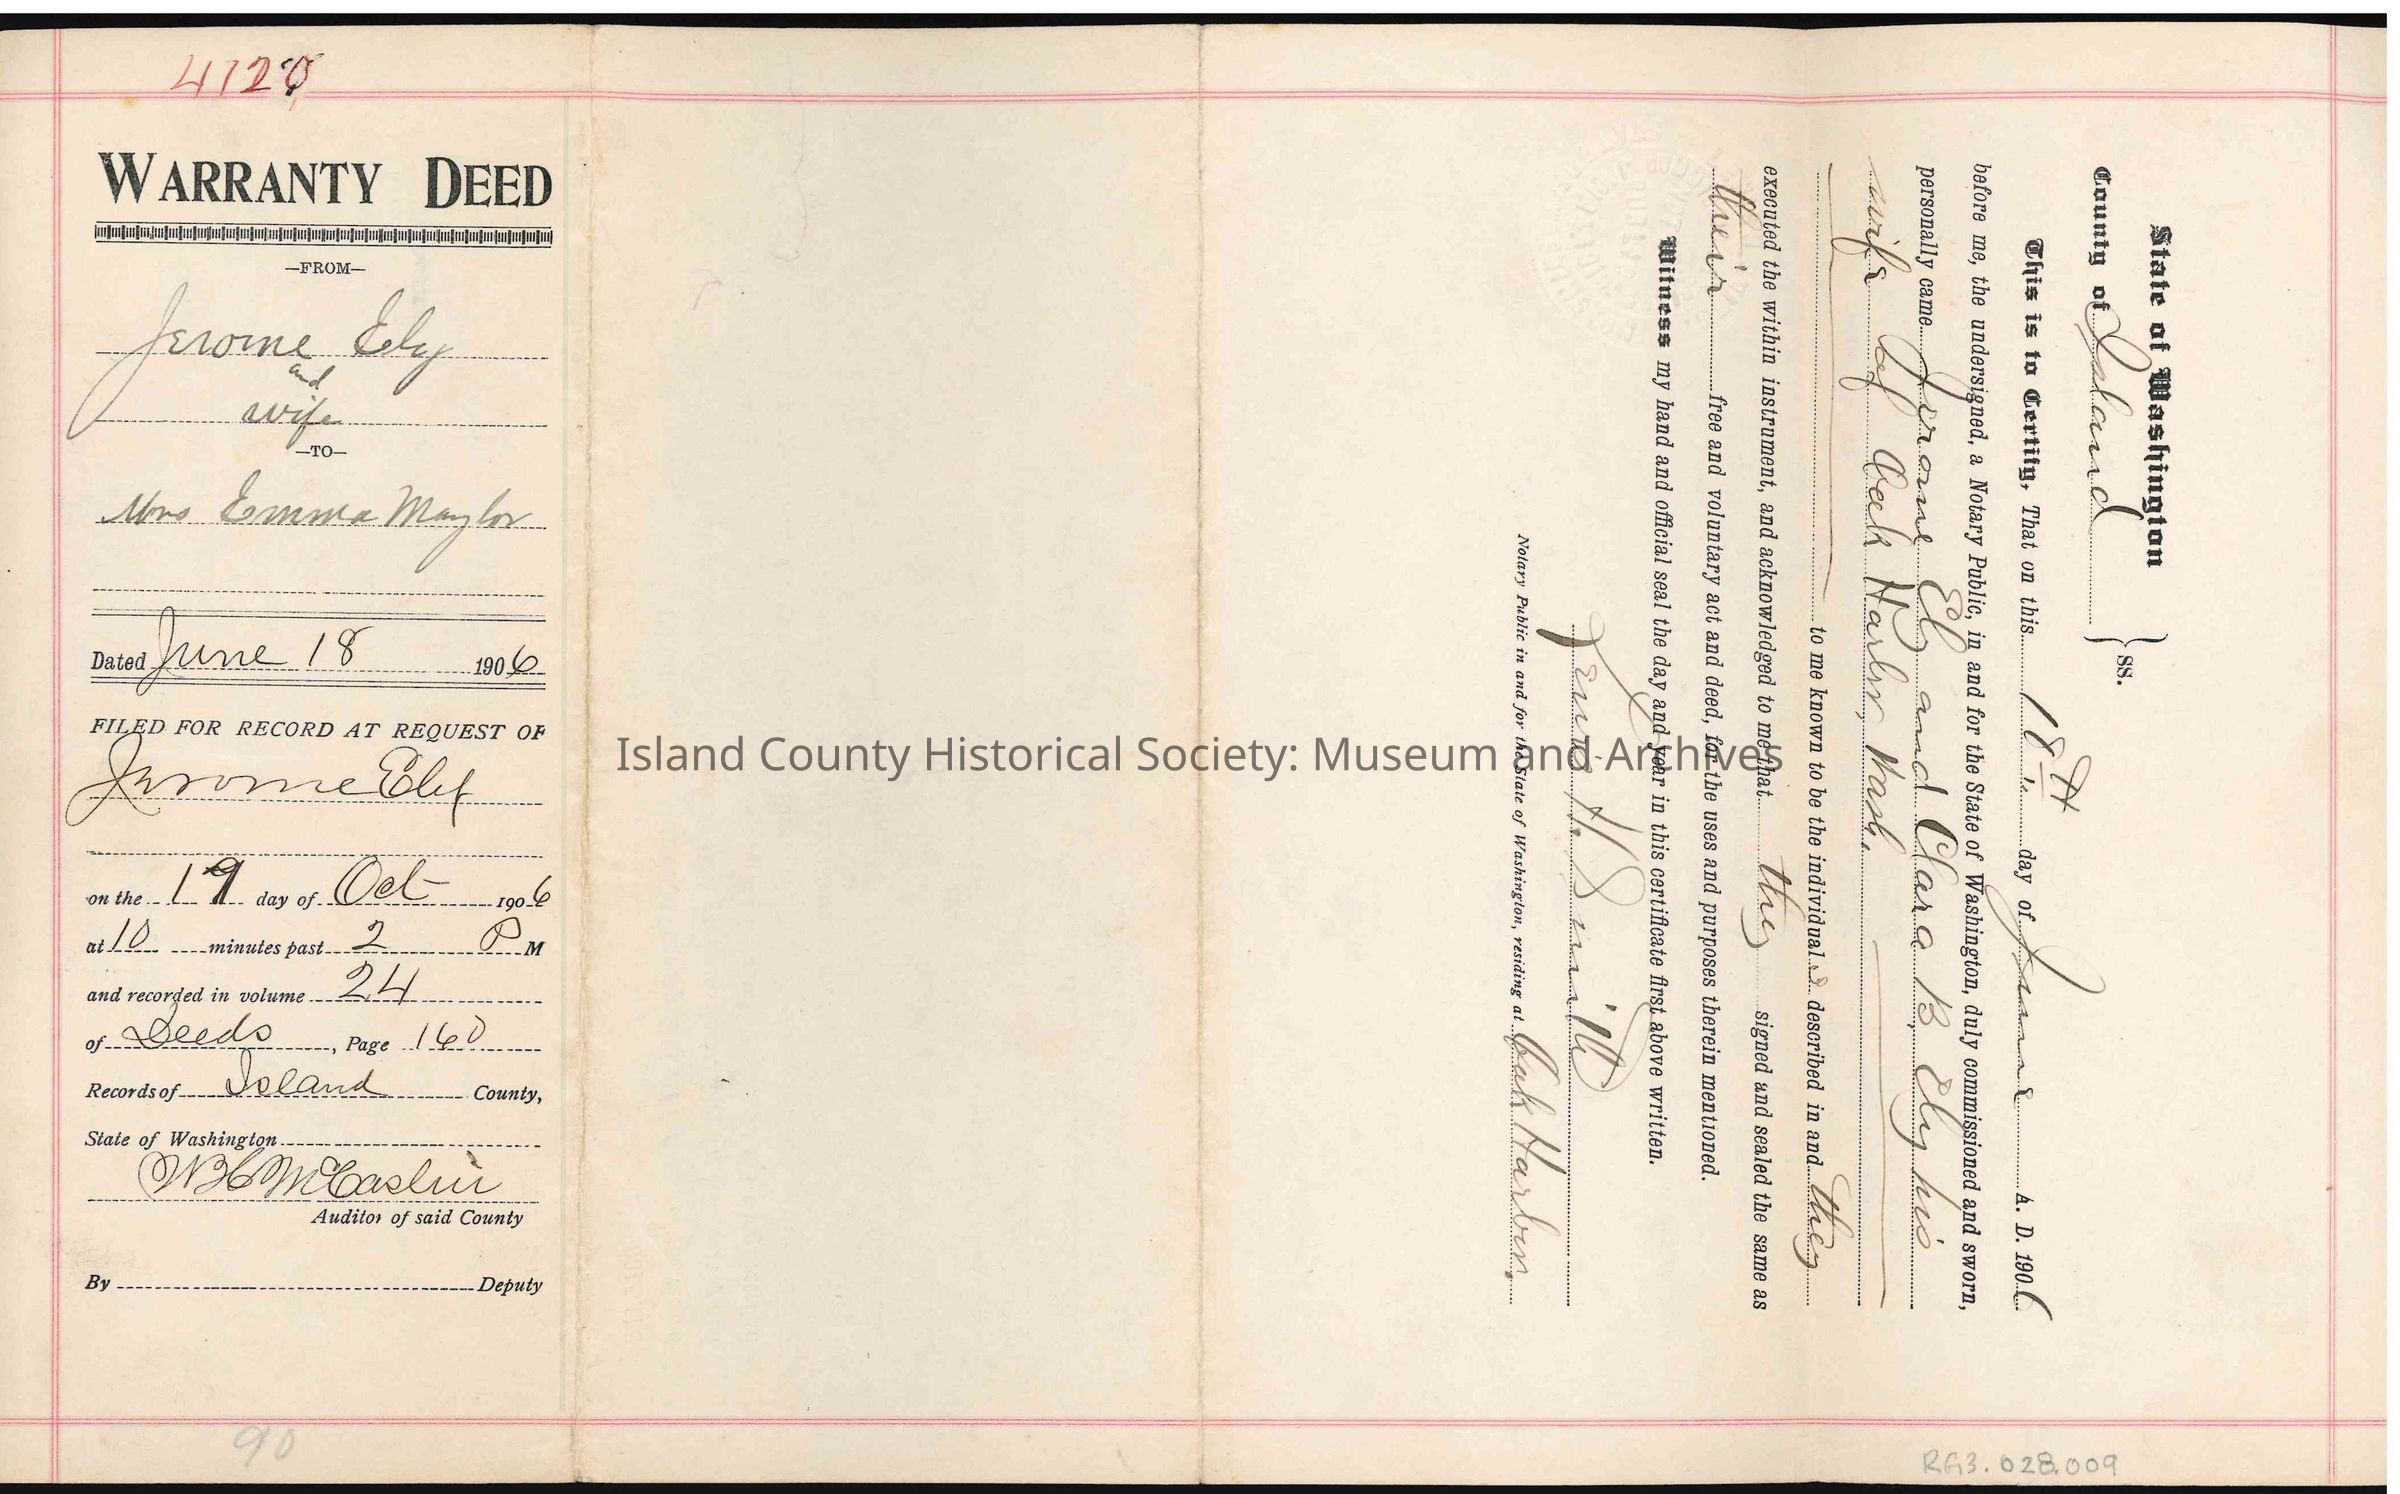 4120
WARRANTY DEED
—FROM—
Jerome Ely
and
wife
—TO—
Mrs Emma Maylor
Dated June 18 1906
FILED FOR RECORD AT REQUEST OF
Jerome Ely
on the 19 day of Oct 1906
at 10 minutes past 2 P M
and recorded in volume 24
of Deeds, Page 160
Records of Island County,
State of Washington
Auditor of said County
By Deputy
90
Island County Historical Society: Museum and Archives
State of Washington
County of Island } ss.
This is to Certify, That on this 18th day of June A. D. 1906
before me, the undersigned, a Notary Public, in and for the State of Washington, duly commissioned and sworn,
personally came Jerome Ely and Clara B. Ely his
wife of Oak Harbor, Wash.
to me known to be the individual s described in and they
executed the within instrument, and acknowledged to me that they signed and sealed the same as
their free and voluntary act and deed, for the uses and purposes therein mentioned.
Witness my hand and official seal the day and year in this certificate first above written.
H. Smith
Notary Public in and for the State of Washington, residing at Oak Harbor.
RG3.028.009